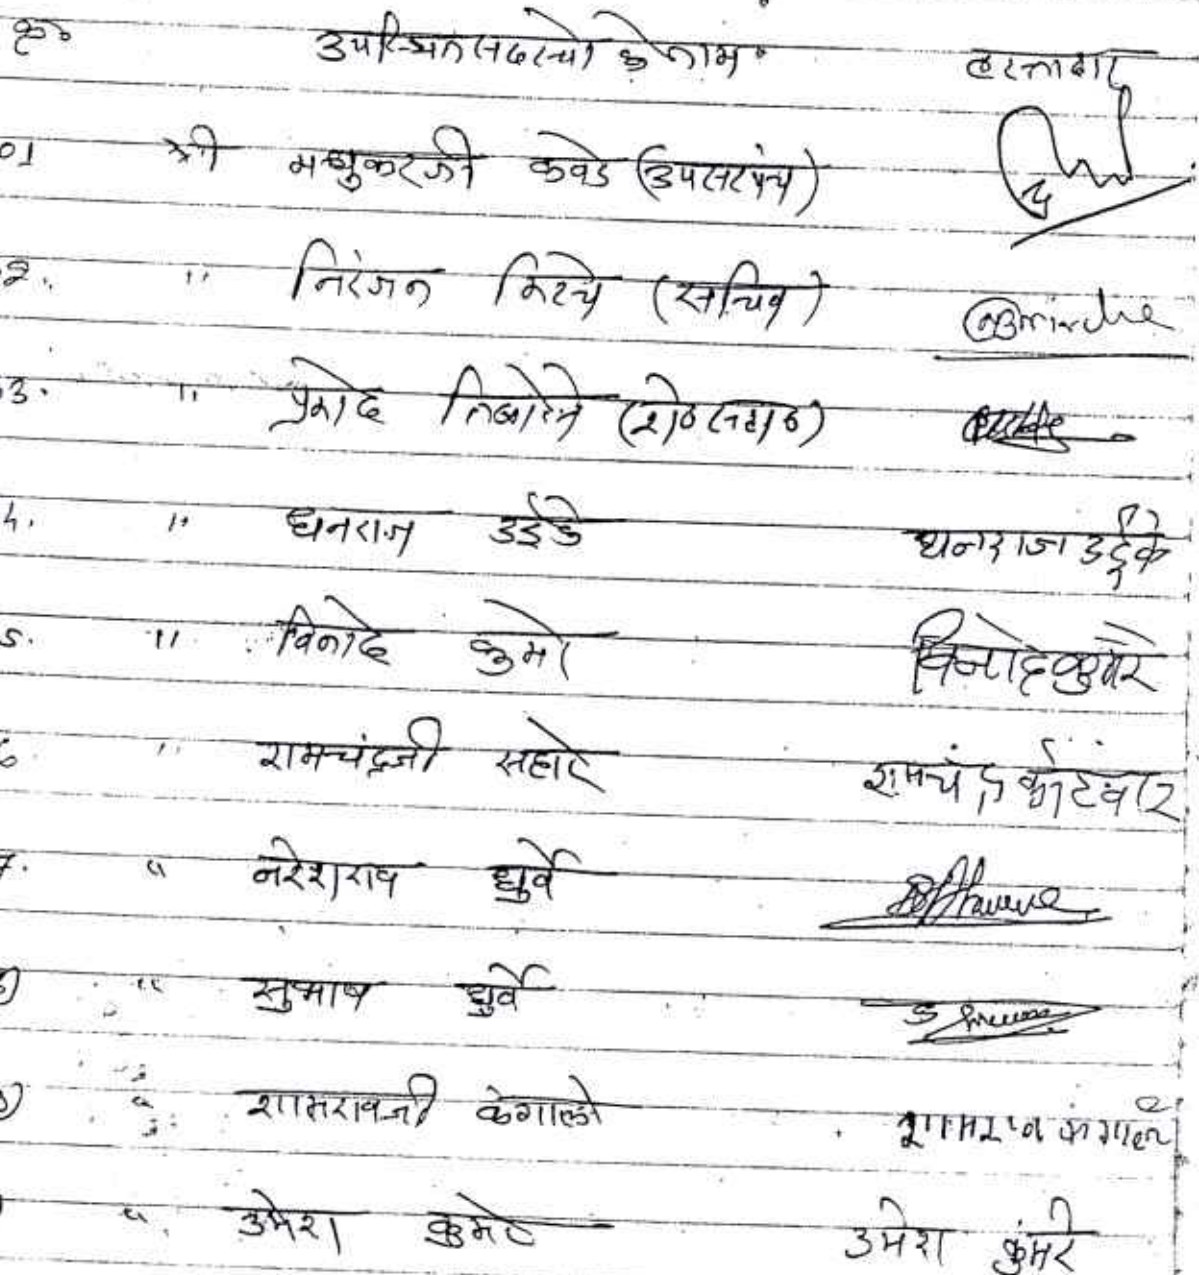 क्र० उपस्थित सदस्यो के नाम हस्ताक्षर
01 श्री मधुकरजी कवडे (उपसरपंच)
2. " निरंजन मिरचे (सचिव)
3. " प्रमोद (रो०स०)
4. " धनराज उईके धनराज उईके
5. " विनोद कुमरे विनोद कुमरे
6. " रामचंद्रजी सहारे रामचंद्र कोटवार
7. " नरेशराव धुर्वे
" सुभाष धुर्वे
" शामरावजी कंगाले शामराव कंगाले
" उमेश कुमरे उमेश कुमरे